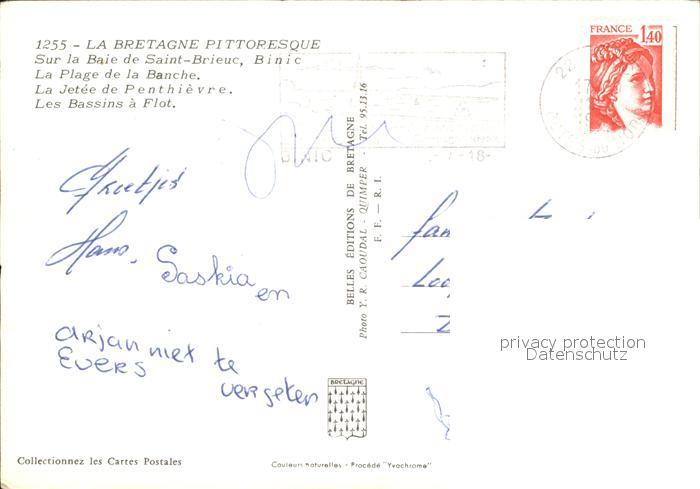 1255 - LA BRETAGNE PITTORESQUE
Sur la Baie de Saint-Brieuc, Binic
La Plage de la Banche.
La Jetée de Penthièvre.
Les Bassins à Flot.
FRANCE
1,40
22
BINIC
Groetjes
Hans,
Saskia
en
Arjan niet te
Evers
vergeten
BELLES ÉDITIONS DE BRETAGNE
Photo Y. R. CAOUDAL - QUIMPER - Tel. 95.13.16
F. E. — R. I.
fam
privacy protection
Datenschutz
BRETAGNE
Collectionnez les Cartes Postales
Couleurs naturelles - Procédé "Yvochrome"